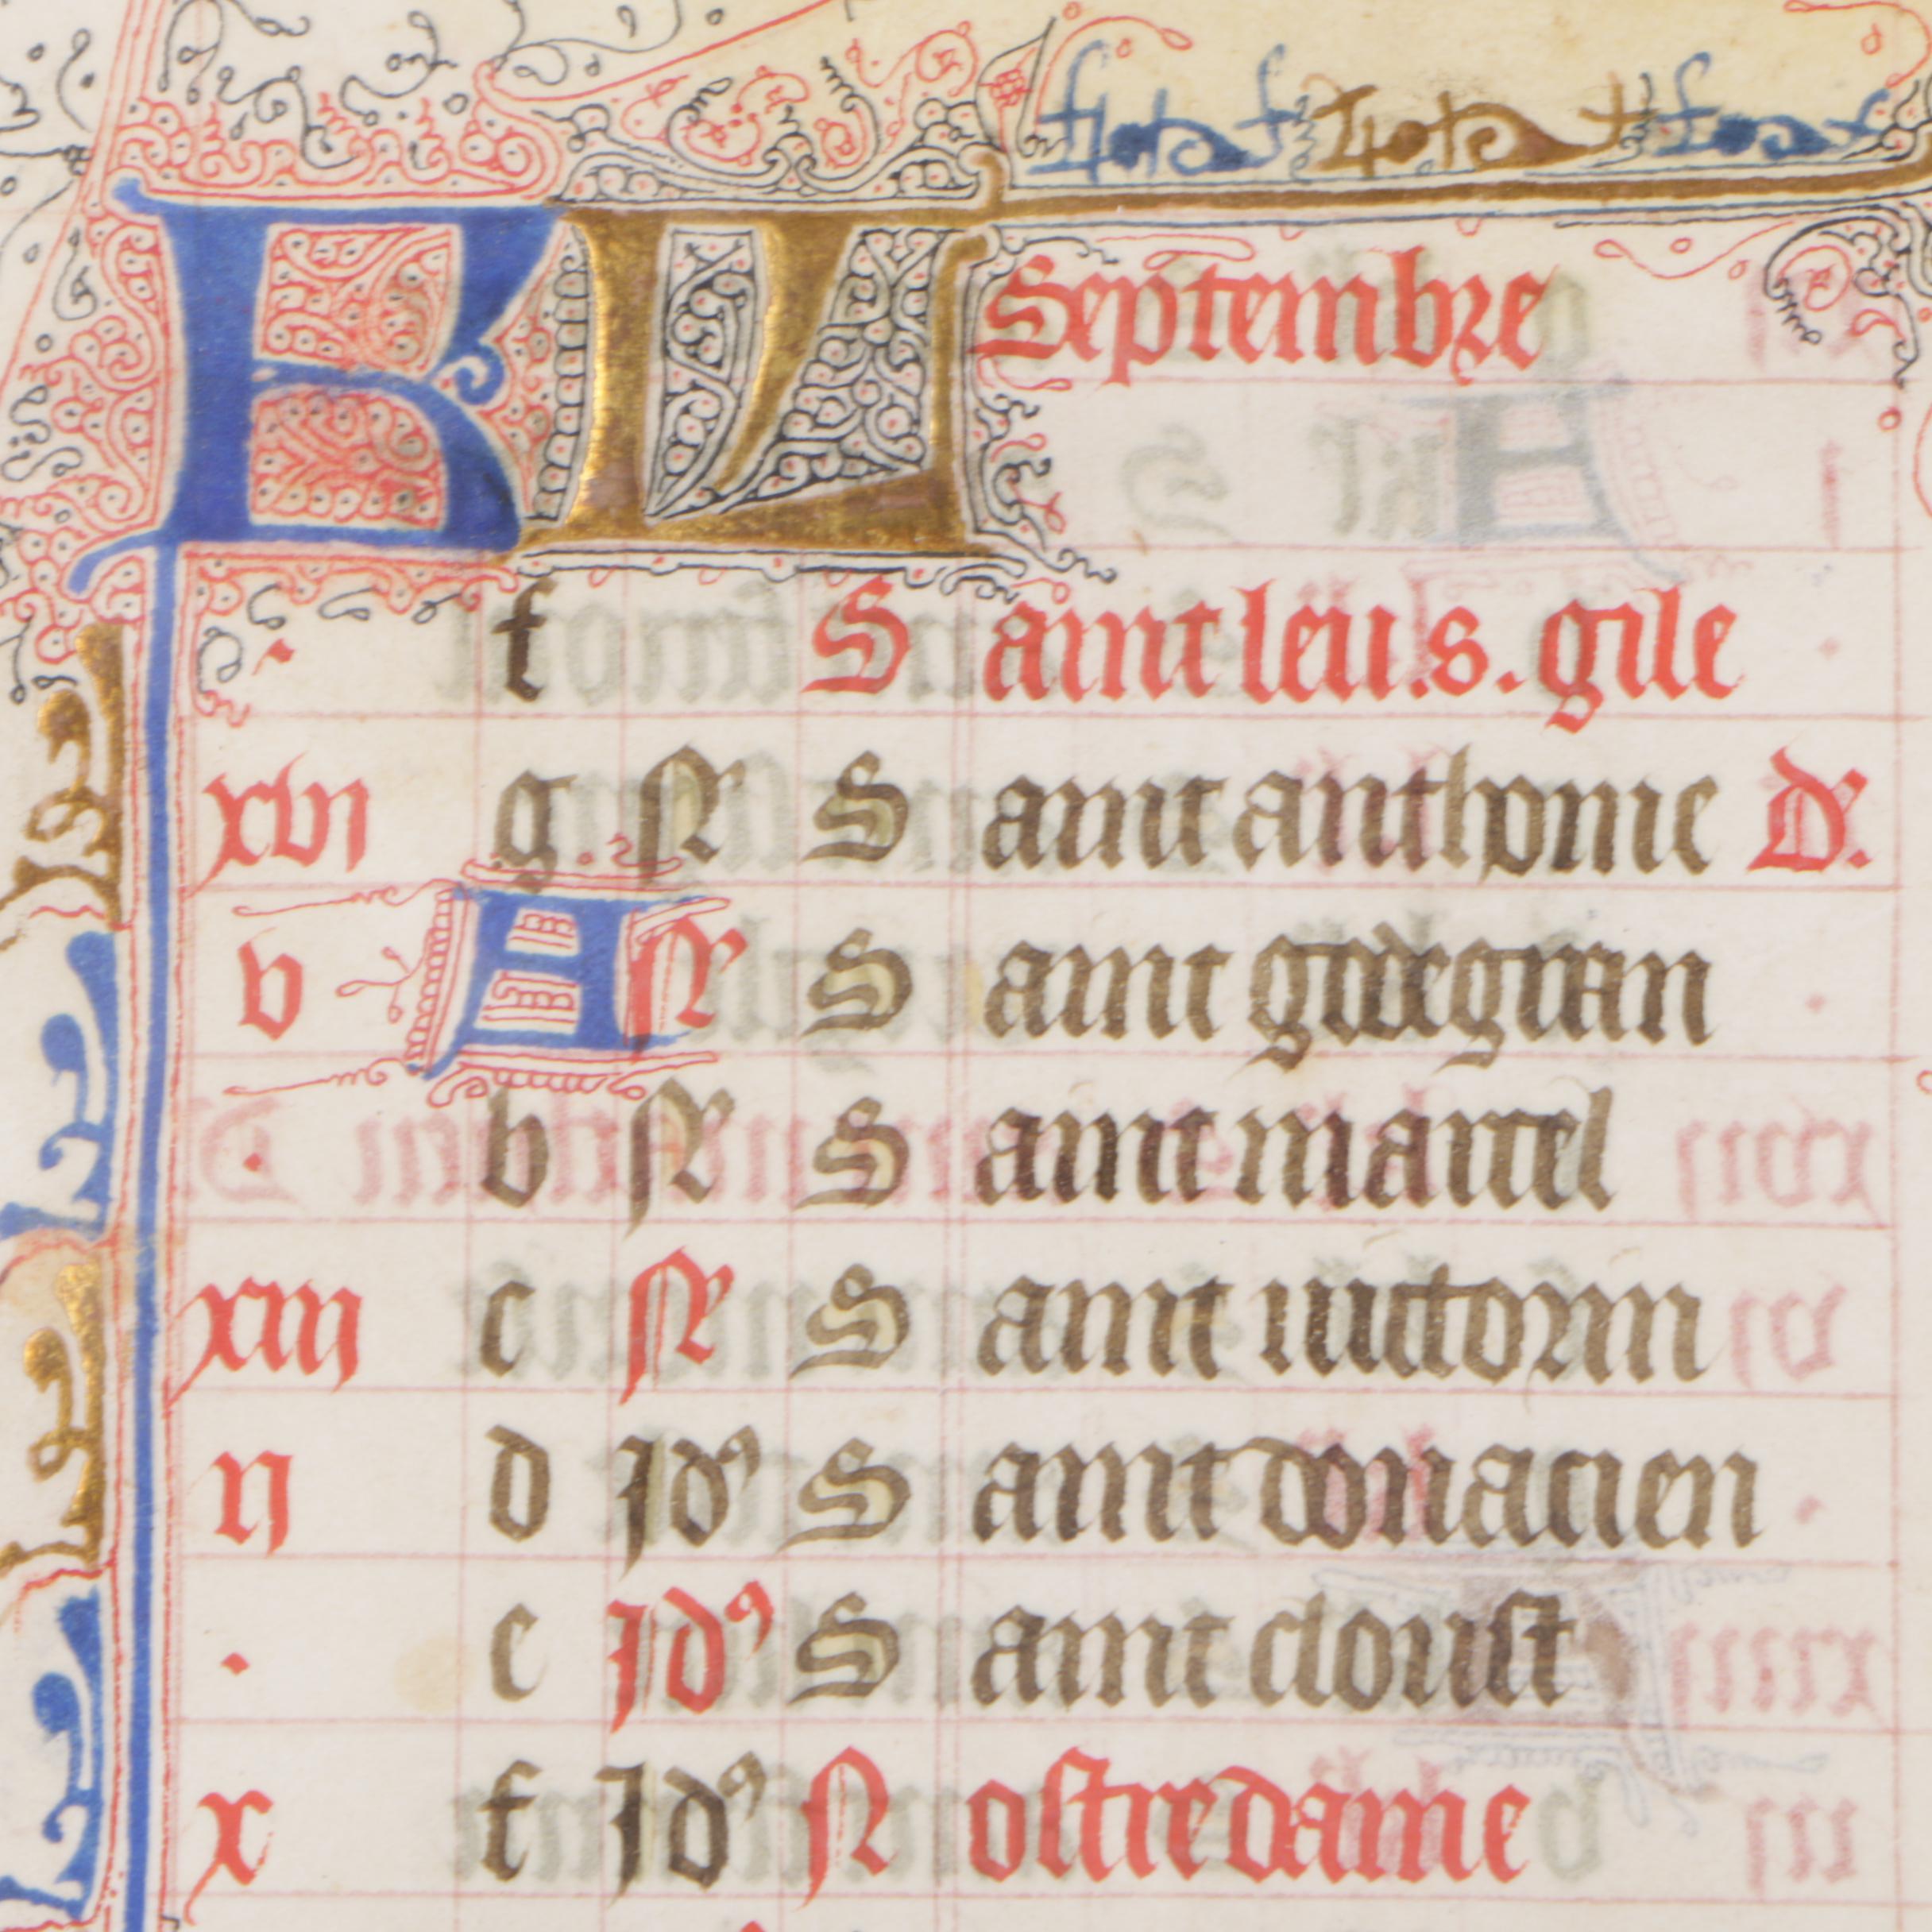 KL Septembre
f Saint leu. s. gile
xvi g N Saint anthonie D.
v A N Saint
b N Saint marcel
xiii c N Saint uictorin
ii d Id⁹ Saint donacien
e Id⁹ Saint cloust
x f Id⁹ Nostre dame